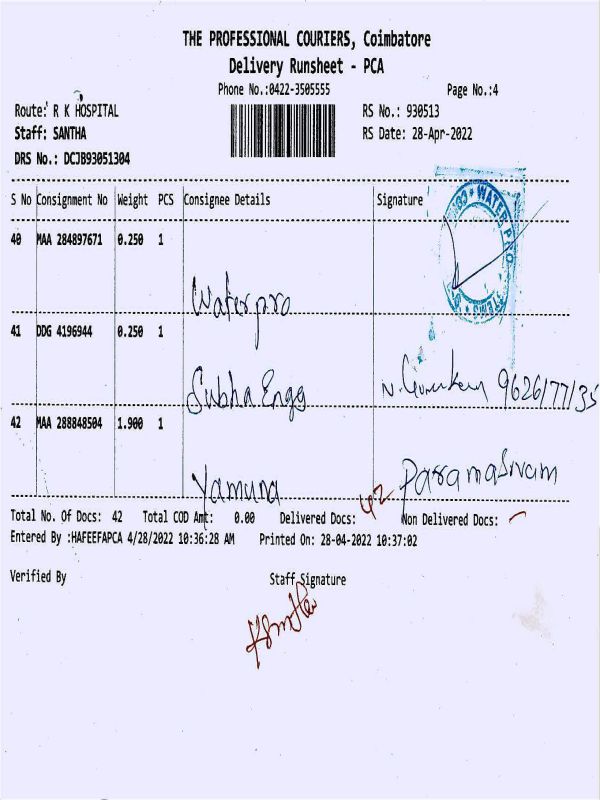 THE PROFESSIONAL COURIERS, Coimbatore
Delivery Runsheet - PCA
Phone No.:0422-3505555 Page No.:4
Route: R K HOSPITAL RS No.: 930513
Staff: SANTHA RS Date: 28-Apr-2022
DRS No.: DCJB93051304
S No Consignment No Weight PCS Consignee Details Signature
WATER PRO
40 MAA 284897671 0.250 1
Waterpro
41 DDG 4196944 0.250 1
Subha Engg 9626177135
42 MAA 288848504 1.900 1
Yamuna Paramasivam
Total No. Of Docs: 42 Total COD Amt: 0.00 Delivered Docs: 42 Non Delivered Docs: -
Entered By :HAFEEFAPCA 4/28/2022 10:36:28 AM Printed On: 28-04-2022 10:37:02
Verified By Staff Signature